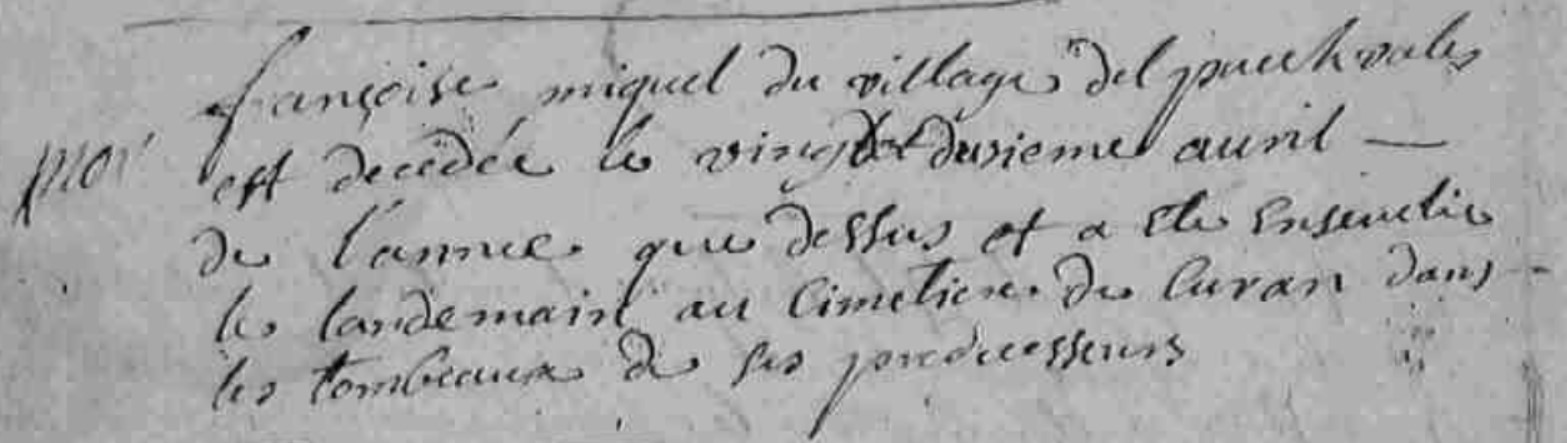 françoise miquel du village del puech vales
mor est decedée le vingt et dusieme auril —
de l'année que dessus et a ete ensevelie
le landemain au cimetiere de Curan dans
les tombeaux de ses predecesseurs